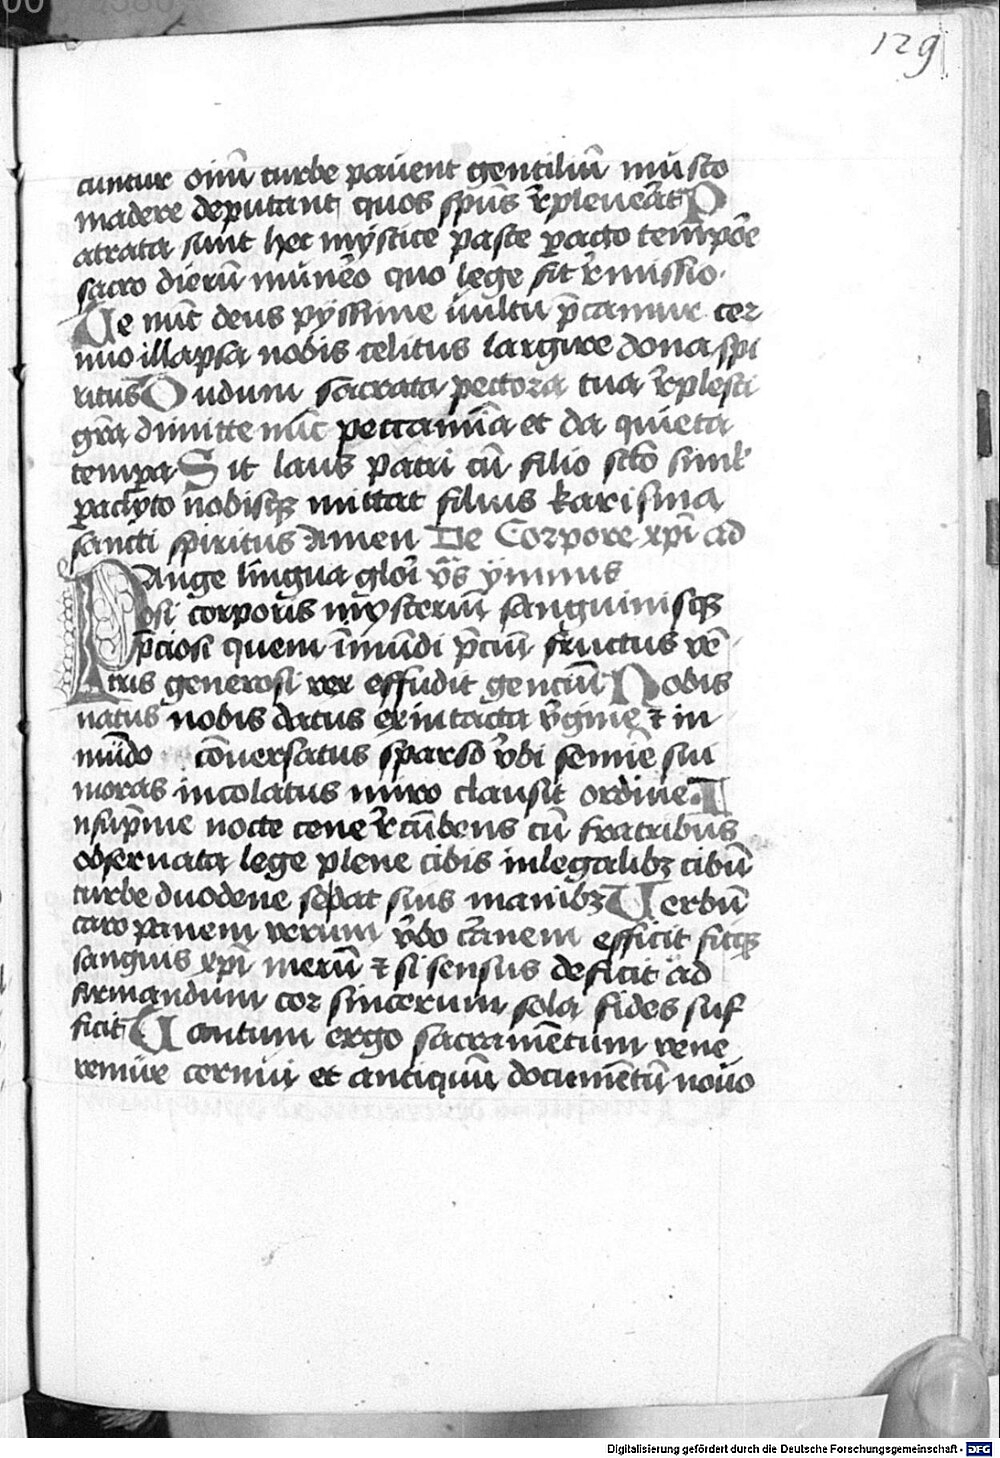 129
cuntur oīnū turbe pavent gentiliū mūsto
madere deputant quos sp̄us r̄pleveāt P
atrata sunt hec mystice paste p̱acto tempōe
sacro dierū munēo quo lege fit r̄missio.
Te nūc deus pyssime vultu p̄camur cer
nuo illapsa nobis celitus largire dona spi
ritus D udum sacrata pectora tua r̄plesti
grā dimitte nūc peccamīa et da quieta
tempa̱ S it laus patri cū filio sc̄to simul
p̱aclyto nobisq₃ mittat filius karisma
sancti spiritus Amen De Corpore xp̄i ad
P Ange lingua glōi v̄s ymnus
osi corporis mysteriū sanguinisq₃
p̄ciosi quem ī mūndi p̄ciū fructus vē
tris generosi rex effudit genciū N obis
natus nobis datus ex intacta v̄gine ⁊ in
mūdo cōuersatus sparso v̄bi semīe sui
moras incolatus miro clausit ordine. I
nsup̄me nocte cene r̄cūbens cū fratribus
obseruata lege plene cibis inlegalibꝫ cibū
turbe duodene se dat suis manibꝫ V erbū
caro panem verum v̄bo cānem efficit fitq₃
sanguis xp̄i merū ⁊ si sensus deficit ad
firmandum cor sincerum sola fides suf
ficit T antum ergo sacramētum vene
remur cernui et antiquū documētū novo
Digitalisierung gefördert durch die Deutsche Forschungsgemeinschaft - DFG